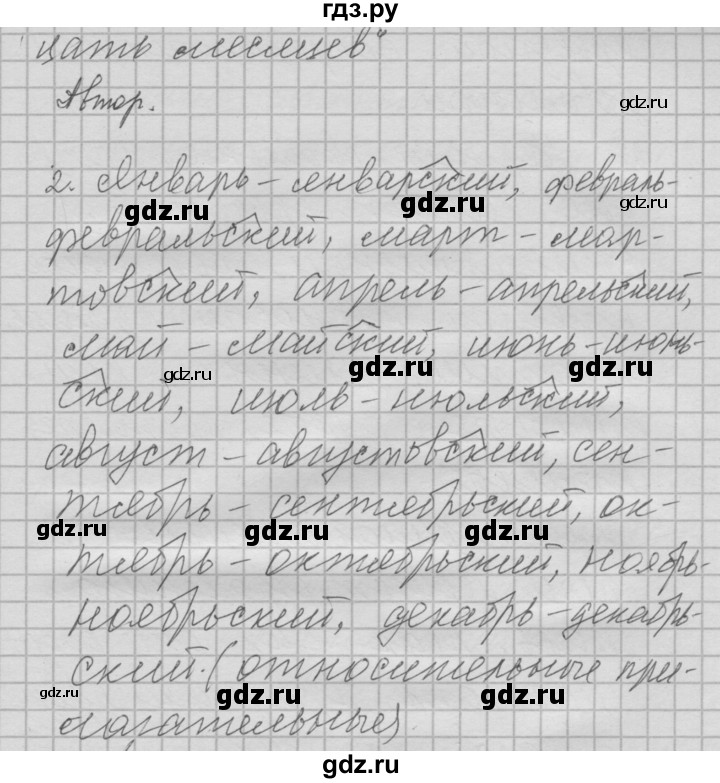 гдз.ру
цать месяцев"
Автор.
gdz.ru
2. Январь - январский, февраль-
gdz.ru gdz.ru gdz.ru
февральский, март - мар-
товский, апрель - апрельский,
май - майский, июнь - июнь-
gdz.ru gdz.ru gdz.ru
ский, июль - июльский,
август - августовский, сен-
тябрь - сентябрьский, ок-
gdz.ru gdz.ru gdz.ru
тябрь - октябрьский, ноябрь-
ноябрьский, декабрь - декабрь-
ский. (относительные при-
gdz.ru gdz.ru gdz.ru
лагательные)
gdz.ru